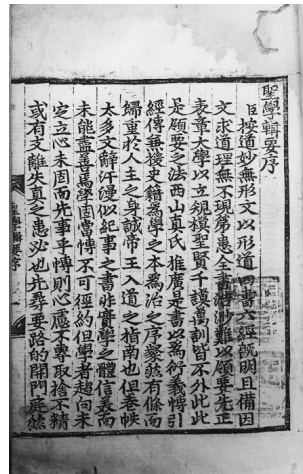 聖學輯要序
臣按道妙無形文以形道四書六經旣明且備因
文求道理無不現第患全書浩渺難以領要先正
表章大學以立規模聖賢千謨萬訓皆不外此此
是領要之法西山真氏推廣是書以爲衍義博引
經傳兼援史籍爲學之本爲治之序粲然有條而
歸重於人主之身誠帝王入道之指南也但卷帙
太多文辭汗漫似紀事之書非實學之體信美而
未能盡善焉學固當博不可徑約但學者趨向未
定立心未固而先事乎博則心慮不專取捨不精
或有支離失真之患必也先尋要路的開門庭然
聖學輯要序